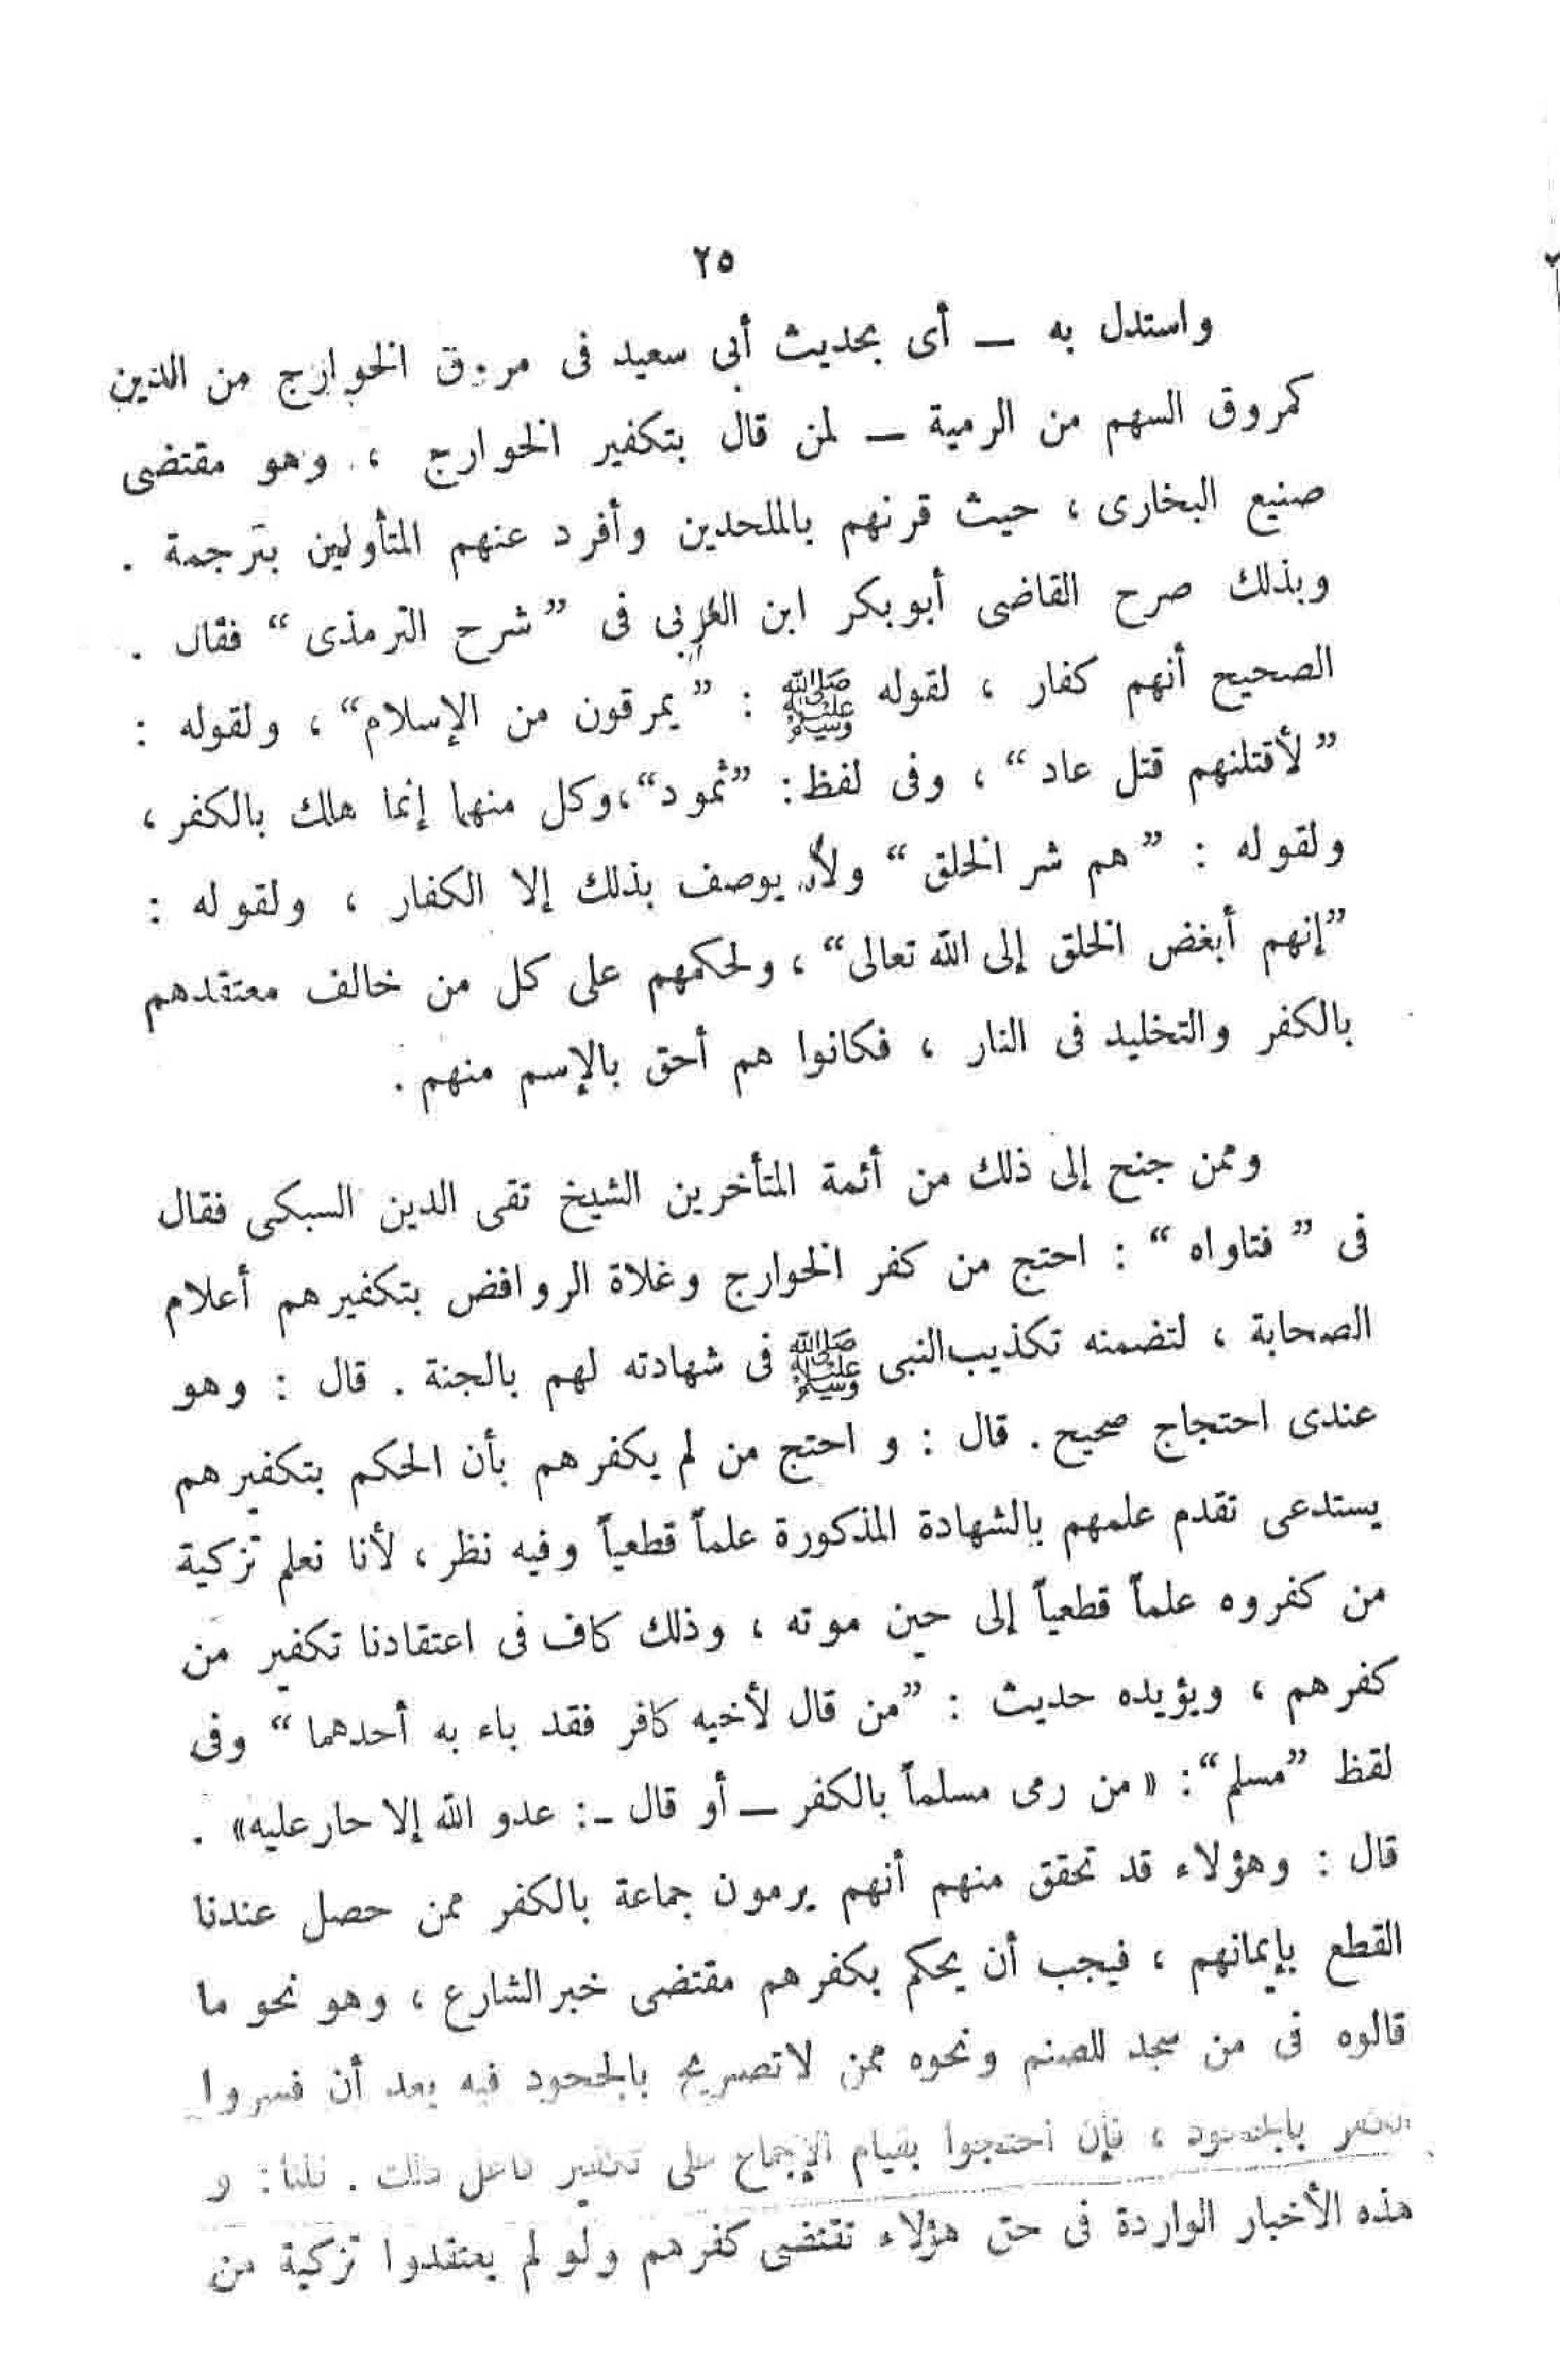 ٢٥
واستدل به — أى بحديث أبى سعيد فى مروق الخوارج من الدين
كمروق السهم من الرمية — لمن قال بتكفير الخوارج ، وهو مقتضى
صنيع البخارى ، حيث قرنهم بالملحدين وأفرد عنهم المتأولين بترجمة .
وبذلك صرح القاضى أبوبكر ابن العربى فى ”شرح الترمذى“ فقال .
الصحيح أنهم كفار ، لقوله ﷺ : ”يمرقون من الإسلام“ ، ولقوله :
”لأقتلنهم قتل عاد“ ، وفى لفظ: ”ثمود“،وكل منهما إنما هلك بالكفر ،
ولقوله : ”هم شر الخلق“ ولا يوصف بذلك إلا الكفار ، ولقوله :
”إنهم أبغض الخلق إلى الله تعالى“ ، ولحكمهم على كل من خالف معتقدهم
بالكفر والتخليد فى النار ، فكانوا هم أحق بالإسم منهم .
وممن جنح إلى ذلك من أئمة المتأخرين الشيخ تقى الدين السبكى فقال
فى ”فتاواه“ : احتج من كفر الخوارج وغلاة الروافض بتكفيرهم أعلام
الصحابة ، لتضمنه تكذيب النبى ﷺ فى شهادته لهم بالجنة . قال : وهو
عندى احتجاج صحيح . قال : و احتج من لم يكفرهم بأن الحكم بتكفيرهم
يستدعى تقدم علمهم بالشهادة المذكورة علماً قطعياً وفيه نظر ، لأنا نعلم تزكية
من كفروه علماً قطعياً إلى حين موته ، وذلك كاف فى اعتقادنا تكفير من
كفرهم ، ويؤيده حديث : ”من قال لأخيه كافر فقد باء به أحدهما“ وفى
لفظ ”مسلم“: «من رمى مسلماً بالكفر — أو قال -: عدو الله إلا حار عليه» .
قال : وهؤلاء قد تحقق منهم أنهم يرمون جماعة بالكفر ممن حصل عندنا
القطع بإيمانهم ، فيجب أن يحكم بكفرهم مقتضى خبر الشارع ، وهو نحو ما
قالوه فى من سجد للصنم ونحوه ممن لاتصريح بالجحود فيه بعد أن فسروا
الكفر بالجحود ، فإن احتجوا بقيام الإجماع على تكفير فاعل ذلك . قلنا : و
هذه الأخبار الواردة فى حق هؤلاء تقتضى كفرهم ولو لم يعتقدوا تزكية من